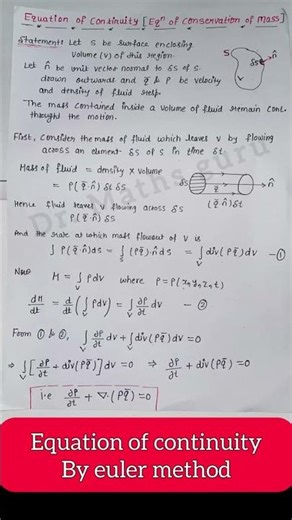 Equation of Continuity [Eqn of Conservation of Mass]
Statement:- Let S be surface enclosing
Volume (V) of this region.
Let n̂ be unit vector normal to δS of S.
drawn outwards and q̄ & ρ be velocity
and density of fluid resp.
The mass contained inside a volume of fluid remain cont.
throught the motion.
S
δS
n̂
V
First, Consider the mass of fluid which leaves V by flowing
across an element δS of S in time δt.
Mass of fluid = density × Volume
= ρ(q̄·n̂) δt δS
δS
n̂
(q̄·n̂)δt
Hence fluid leaves V flowing across δS
ρ(q̄·n̂) δS
And the rate at which mass flowout of V is
∫ρ(q̄·n̂)ds = ∫S(ρq̄)·n̂ ds = ∫V div(ρq̄)dv —①
Now M = ∫V ρdv where ρ=ρ(x,y,z,t)
dM/dt = d/dt(∫V ρdv) = ∫V ∂ρ/∂t dv —②
From ① & ②, ∫V ∂ρ/∂t dv + ∫V div(ρq̄)dv = 0
⇒ ∫V[∂ρ/∂t + div(ρq̄)]dv = 0 ⇒ ∂ρ/∂t + div(ρq̄) = 0
i.e ∂ρ/∂t + ∇·(ρq̄) = 0
Equation of continuity
By euler method